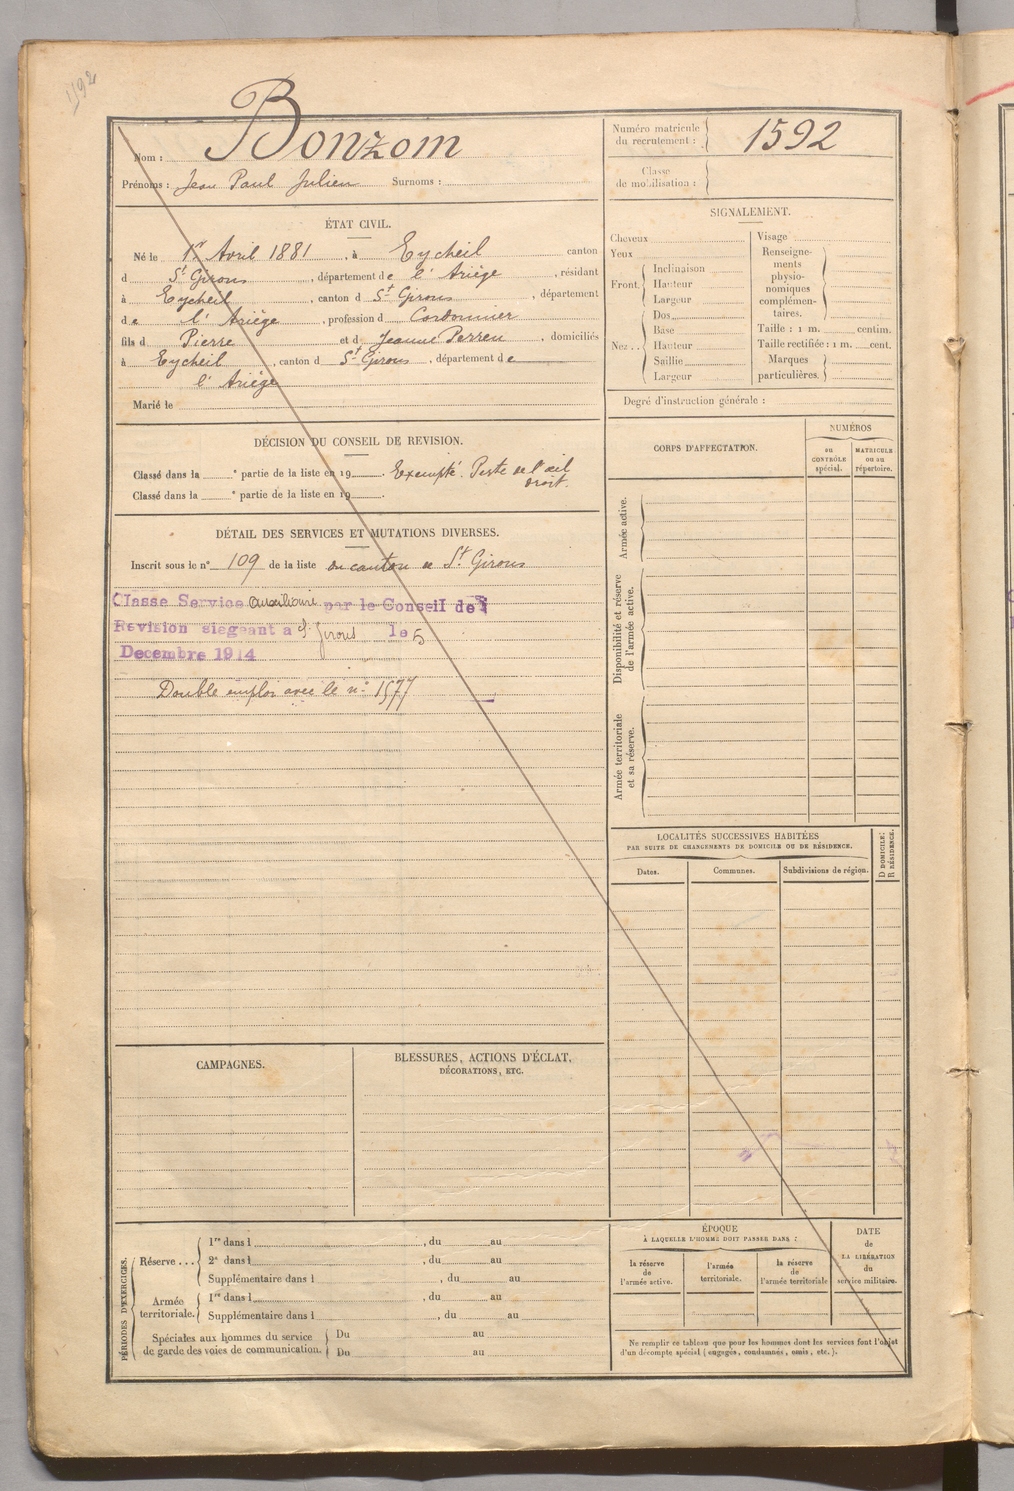 1192
Nom : Bonzom
Prénoms : Jean Paul Julien Surnoms :
Numéro matricule du recrutement : 1592
Classe de mobilisation :
ÉTAT CIVIL.
Né le 1er Avril 1881, à Eycheil canton
d St Girons, département de l'Ariège, résidant
à Eycheil, canton d St Girons, département
de l'Ariège, profession d Cordonnier
fils d Pierre et d Jeanne Perreu, domiciliés
à Eycheil, canton d St Girons, département de
l'Ariège
Marié le
DÉCISION DU CONSEIL DE REVISION.
Classé dans la e partie de la liste en 19 . Exempté. Perte de l'œil
droit.
Classé dans la e partie de la liste en 19 .
DÉTAIL DES SERVICES ET MUTATIONS DIVERSES.
Inscrit sous le no 109 de la liste du canton de St Girons
Classe Service auxiliaire par le Conseil de
Revision siegeant a St Girons le 5
Decembre 1914
Double emploi avec le no 1577
SIGNALEMENT.
Cheveux
Yeux
Front
Inclinaison
Hauteur
Largeur
Nez ..
Dos
Base
Hauteur
Saillie
Largeur
Visage
Renseigne-
ments
physio-
nomiques
complémen-
taires.
Taille : 1 m. centim.
Taille rectifiée : 1 m. cent.
Marques
particulières.
Degré d'instruction générale :
CORPS D'AFFECTATION.
NUMÉROS
au
CONTRÔLE
spécial.
MATRICULE
ou au
répertoire.
Armée active.
Disponibilité et réserve
de l'armée active.
Armée territoriale
et sa réserve.
LOCALITÉS SUCCESSIVES HABITÉES
PAR SUITE DE CHANGEMENTS DE DOMICILE OU DE RÉSIDENCE.
Dates.
Communes.
Subdivisions de région.
D DOMICILE;
R RÉSIDENCE.
CAMPAGNES.
BLESSURES, ACTIONS D'ÉCLAT,
DÉCORATIONS, ETC.
PÉRIODES D'EXERCICES.
Réserve ...
1re dans l , du au
2e dans l , du au
Supplémentaire dans l , du au
Armée
territoriale.
1re dans l , du au
Supplémentaire dans l , du au
Spéciales aux hommes du service
de garde des voies de communication.
Du au
Du au
ÉPOQUE
À LAQUELLE L'HOMME DOIT PASSER DANS :
la réserve
de
l'armée active.
l'armée
territoriale.
la réserve
de
l'armée territoriale
DATE
de
LA LIBÉRATION
du
service militaire.
Ne remplir ce tableau que pour les hommes dont les services font l'objet
d'un décompte spécial (engagés, condamnés, omis, etc.).